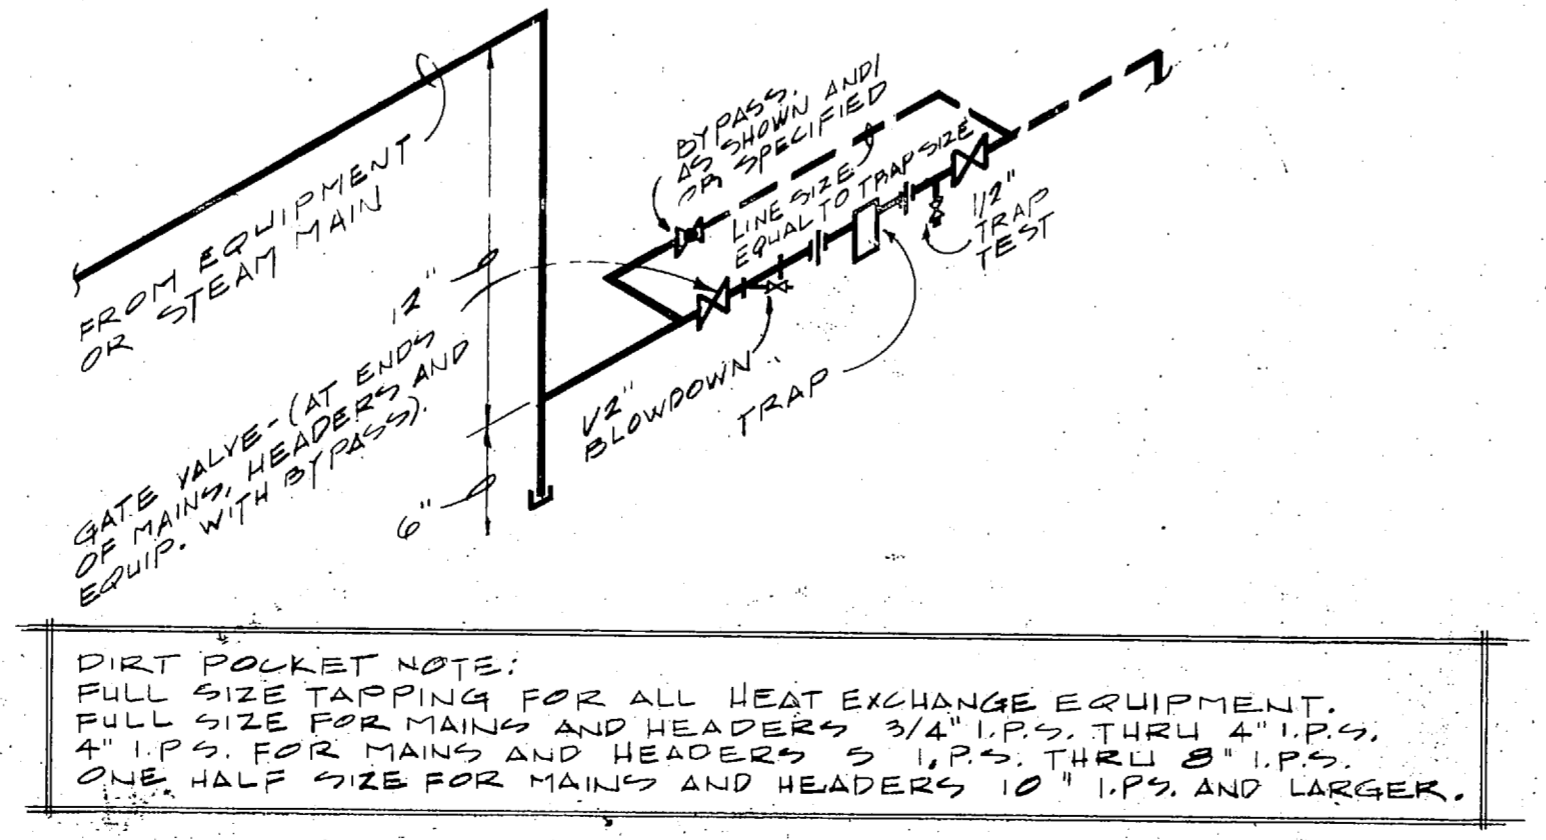 FROM EQUIPMENT
OR STEAM MAIN
12"
GATE VALVE-(AT ENDS
OF MAINS, HEADERS AND
EQUIP. WITH BYPASS).
6"
BYPASS.
AS SHOWN AND/
OR SPECIFIED
LINE SIZE
EQUAL TO TRAP SIZE
1/2"
TRAP
TEST
1/2"
BLOWDOWN
TRAP
DIRT POCKET NOTE:
FULL SIZE TAPPING FOR ALL HEAT EXCHANGE EQUIPMENT.
FULL SIZE FOR MAINS AND HEADERS 3/4" I.P.S. THRU 4" I.P.S.
4" I.P.S. FOR MAINS AND HEADERS 5 I.P.S. THRU 8" I.P.S.
ONE HALF SIZE FOR MAINS AND HEADERS 10" I.P.S. AND LARGER.